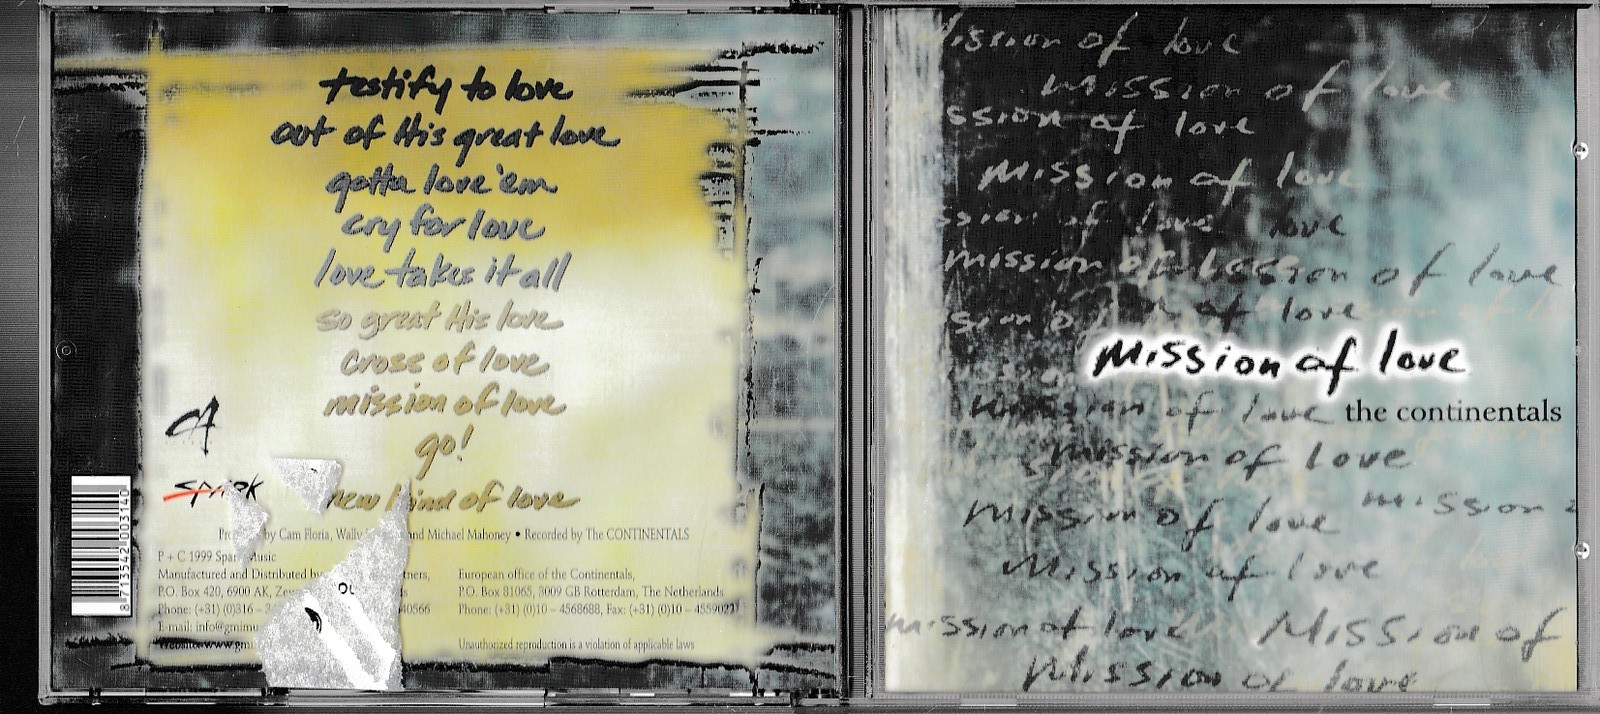 testify to love
out of His great love
gotta love 'em
cry for love
love takes it all
so great His love
cross of love
mission of love
go!
new kind of love
by Cam Floria, Wally and Michael Mahoney • Recorded by The CONTINENTALS
P + C 1999 Music
Manufactured and Distributed by
P.O. Box 420, 6900 AK,
Phone: (+31) (0)316 – 40566
E-mail:
European office of the Continentals,
P.O. Box 81065, 3009 GB Rotterdam, The Netherlands
Phone: (+31) (0)10 – 4568688, Fax: (+31) (0)10 –
Unauthorized reproduction is a violation of applicable laws
8 713542 003140
mission of love
mission of love
of love
mission of love
of love love
mission of of love
of love
mission of love
the continentals
mission of love
mission of love
mission of love mission
mission of love
mission of love Mission of
mission of love